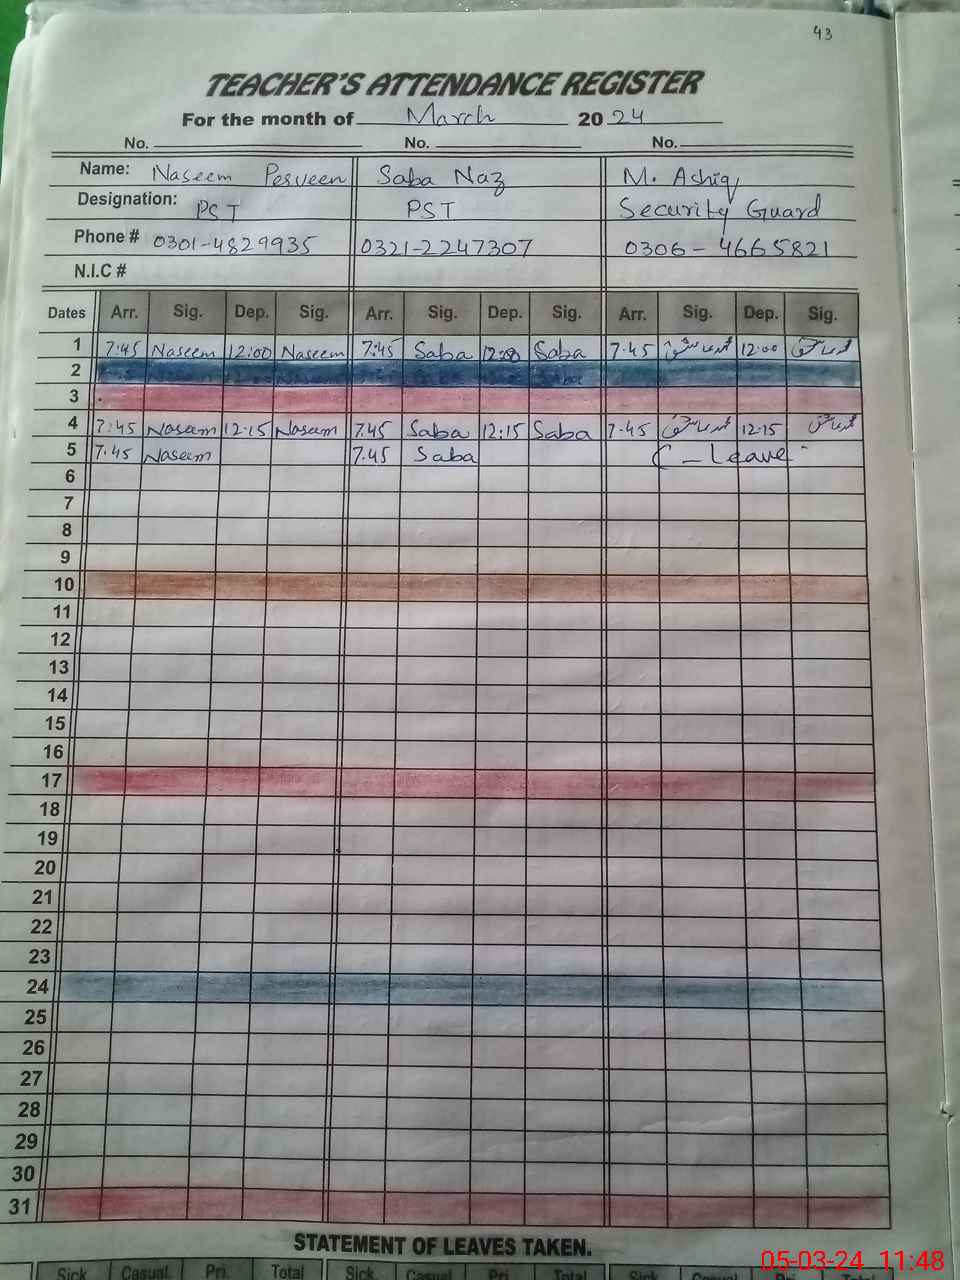 43
TEACHER'S ATTENDANCE REGISTER
For the month of March 2024
No. No. No.
Name: Naseem Perveen Saba Naz M. Ashiq
Designation: PST PST Security Guard
Phone # 0301-4829935 0321-2247307 0306-4665821
N.I.C #
Dates Arr. Sig. Dep. Sig. Arr. Sig. Dep. Sig. Arr. Sig. Dep. Sig.
1 7:45 Naseem 12:00 Naseem 7:45 Saba 12:00 Saba 7.45 12:00
2
3
4 7:45 Naseem 12:15 Naseem 7.45 Saba 12:15 Saba 7.45 12:15
5 7.45 Naseem 7.45 Saba C-Leave
6
7
8
9
10
11
12
13
14
15
16
17
18
19
20
21
22
23
24
25
26
27
28
29
30
31
STATEMENT OF LEAVES TAKEN.
Sick Casual Pri. Total Sick Casual Pri. Total Sick Casual Pri.
05-03-24 11:48